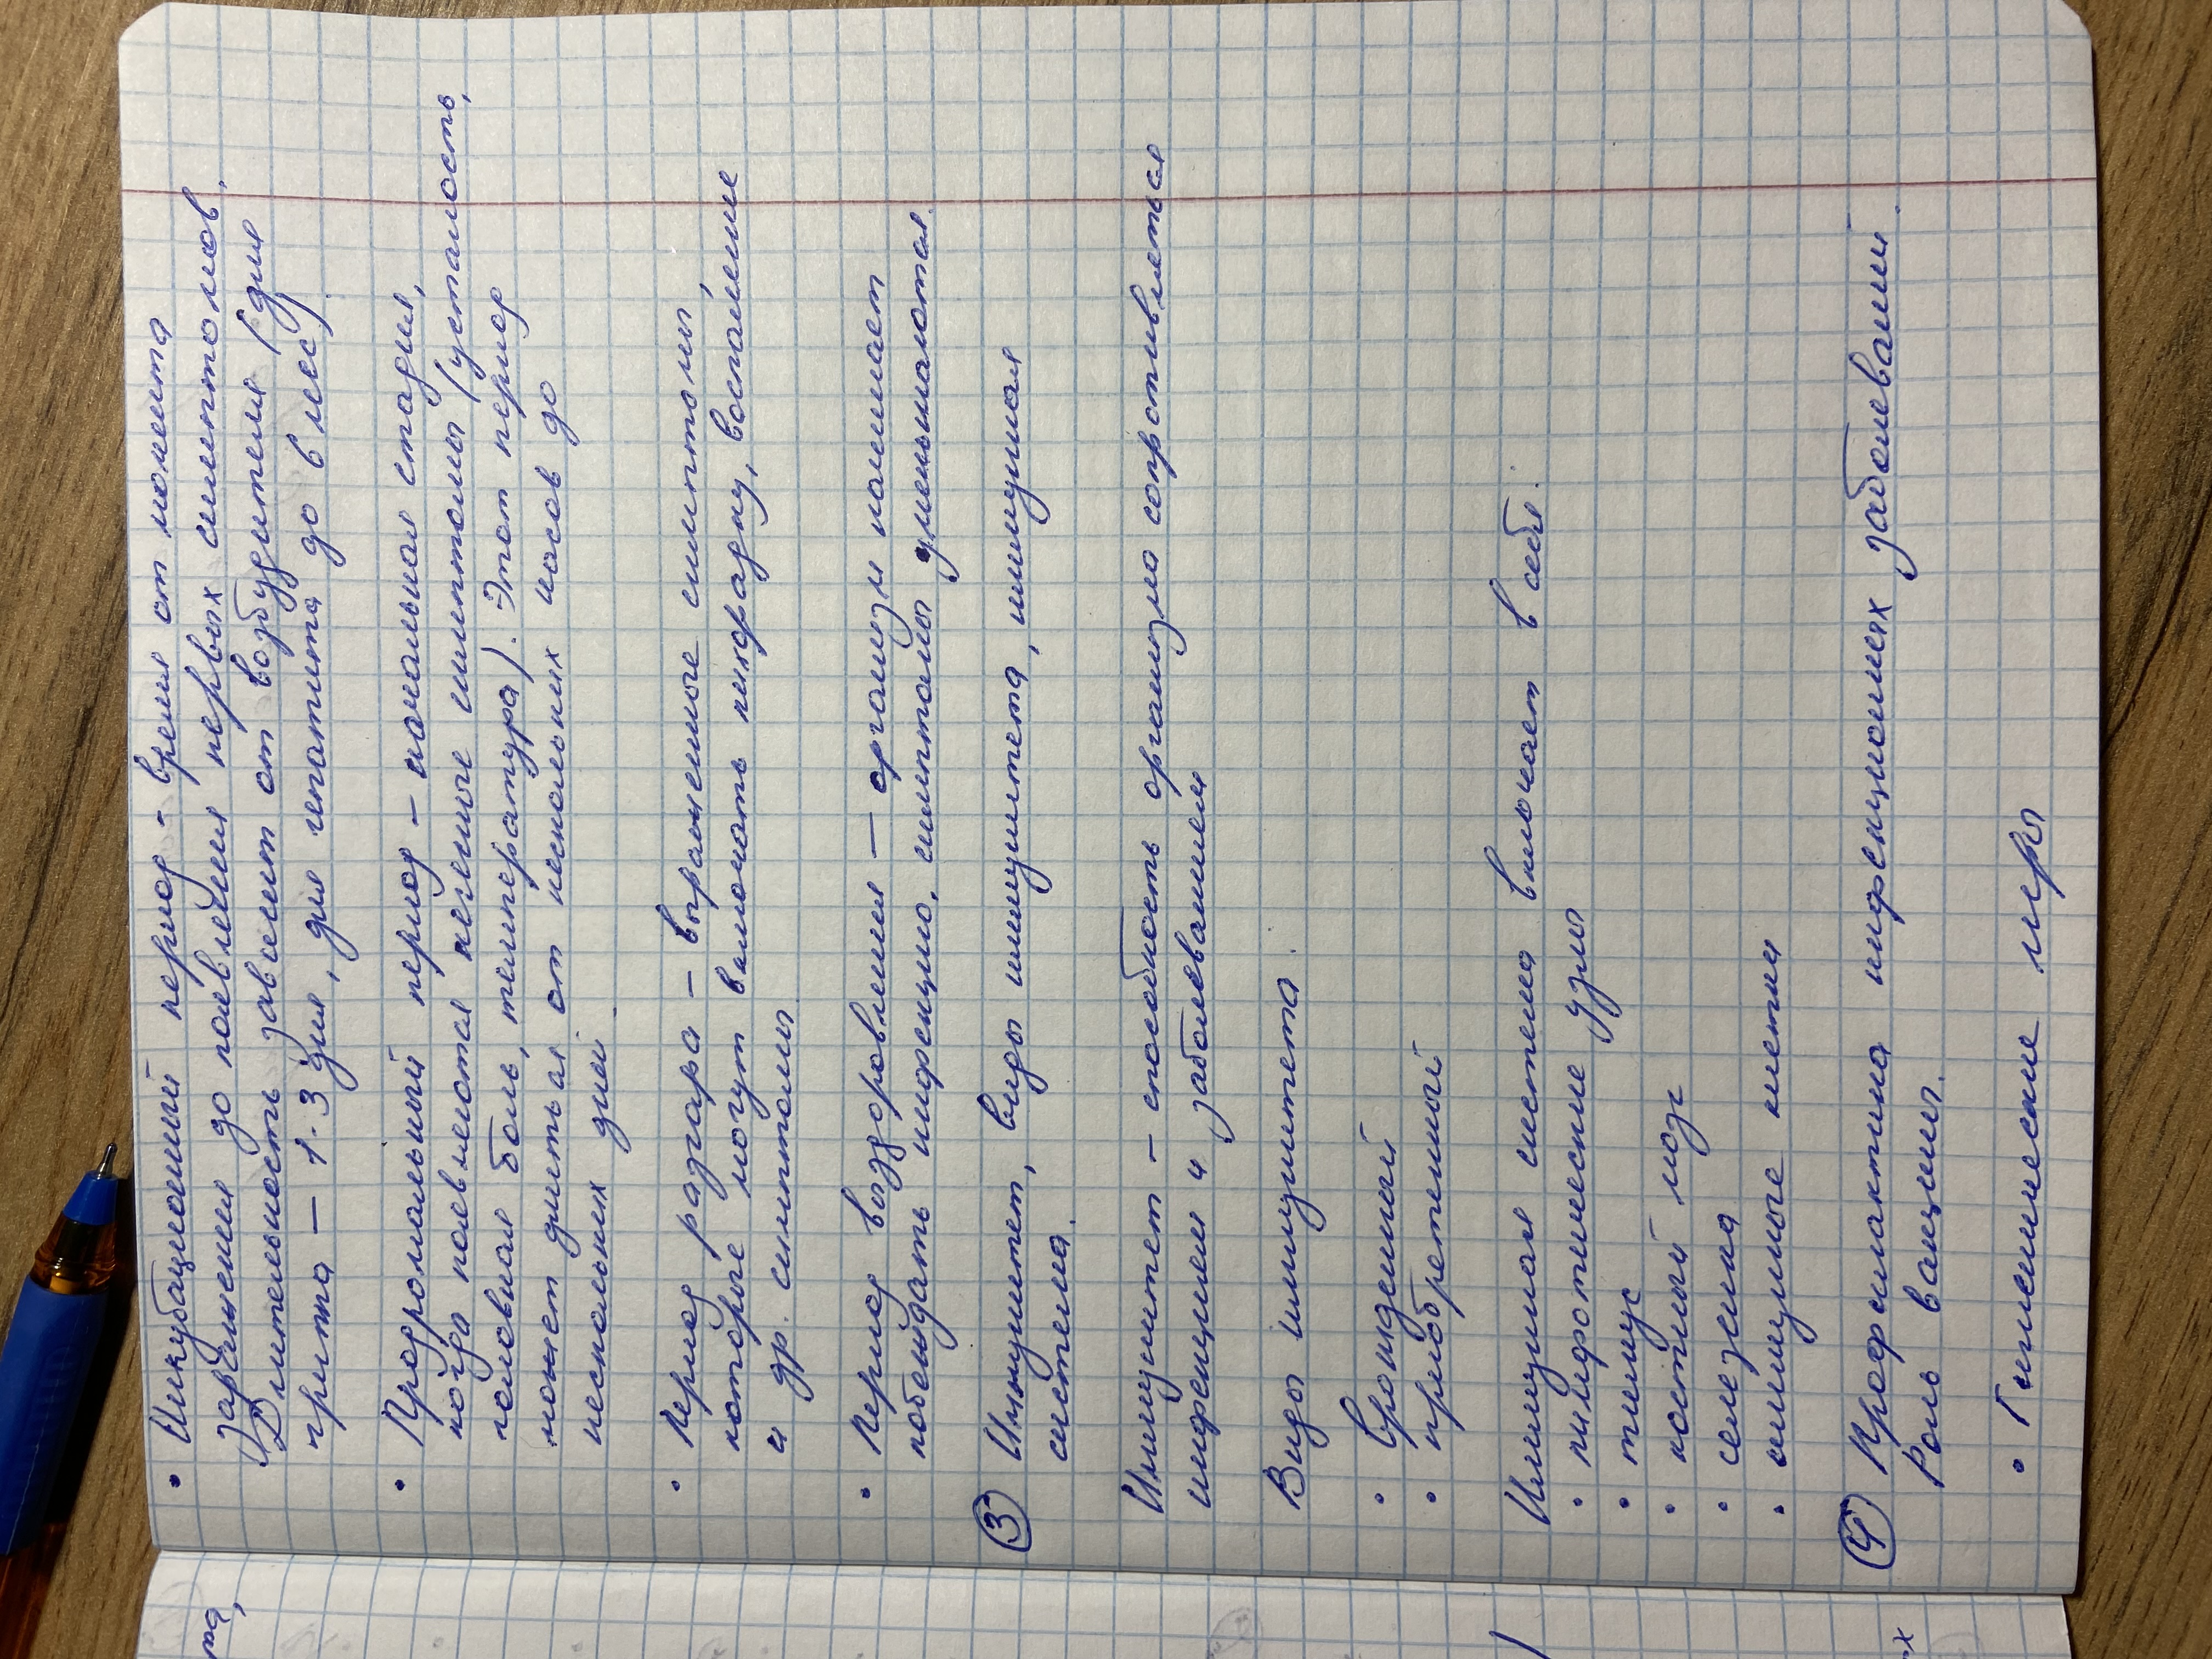 • Инкубационный период - время от момента
заражения до появления первых симптомов.
Длительность зависит от возбудителя (для
гриппа — 1-3 дня, для гепатита до 6 мес).
• Продромальный период — начальная стадия,
когда появляются легкие симптомы (усталость,
головная боль, температура). Этот период
может длиться от нескольких часов до
нескольких дней.
• Период разгара — выраженные симптомы,
которые могут включать лихорадку, воспаление
и др. симптомы
• Период выздоровления — организм начинает
побеждать инфекцию, симптомы уменьшаются.
③ Иммунитет, виды иммунитета, иммунная
система.
Иммунитет — способность организма сопротивляться
инфекциям и заболеваниям
Виды иммунитета:
• врожденный
• приобретенный
Иммунная система включает в себя:
• лимфотические узлы
• тимус
• костный мозг
• селезенка
• иммунные клетки
④ Профилактика инфекционных заболеваний.
Роль вакцины.
• Гигиенические меры
та,
)
ых